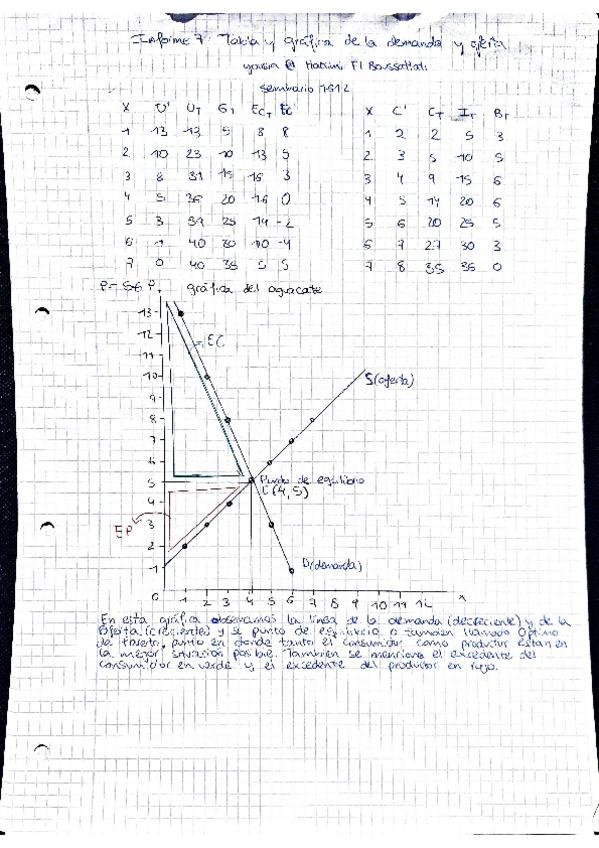 Informe 7: Tabla y gráfica de la demanda y oferta
El Hakimi El Boussattati
Seminario 1512
X U' UT GT ECT EC X C' CT IT BT
1 13 13 5 8 8 1 2 2 5 3
2 10 23 10 13 5 2 3 5 10 5
3 8 31 15 16 3 3 4 9 15 6
4 5 36 20 16 0 4 5 14 20 6
5 3 39 25 14 -2 5 6 20 25 5
6 1 40 30 10 -4 6 7 27 30 3
7 0 40 35 5 5 7 8 35 35 0
P=5€ P. gráfica del aguacate
13
12
11
10
9
8
7
6
5
4
3
2
1
EC
S(oferta)
Punto de equilibrio
E(4,5)
EP
D(demanda)
0 1 2 3 4 5 6 7 8 9 10 11 12 x
En esta gráfica observamos la línea de la demanda (decreciente) y de la
oferta (creciente) y se punto de equilibrio o también llamado Óptimo
de Pareto, punto en donde tanto el consumidor como productor están en
la mejor situación posible. También se menciona el excedente del
consumidor en verde y el excedente del productor en rojo.